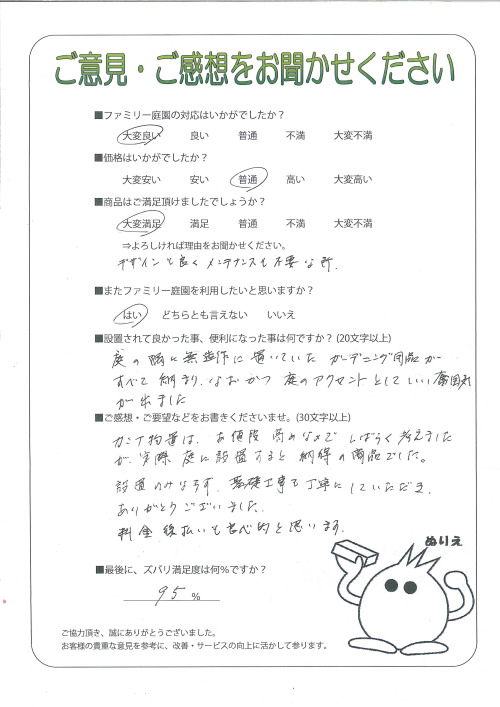 ご意見・ご感想をお聞かせください
■ファミリー庭園の対応はいかがでしたか？
大変良い 良い 普通 不満 大変不満
■価格はいかがでしたか？
大変安い 安い 普通 高い 大変高い
■商品はご満足頂けましたでしょうか？
大変満足 満足 普通 不満 大変不満
⇒よろしければ理由をお聞かせください。
デザインも良くメンテナンスも不要な所.
■またファミリー庭園を利用したいと思いますか？
はい どちらとも言えない いいえ
■設置されて良かった事、便利になった事は何ですか？(20文字以上)
庭の隅に無造作に置いていた ガーデニング用品が
すべて納まり、なおかつ 庭のアクセントとしていい雰囲気
が出ました
■ご感想・ご要望などをお書きくださいませ。(30文字以上)
カンナ物置は、お値段 高めなので しばらく考えました
が、実際 庭に設置すると 納得の商品でした。
設置のみならず、基礎工事も丁寧にしていただき、
ありがとうございました。
料金後払いも良心的と思います.
ぬりえ
■最後に、ズバリ満足度は何％ですか？
95 %
ご協力頂き、誠にありがとうございました。
お客様の貴重な意見を参考に、改善・サービスの向上に活かして参ります。